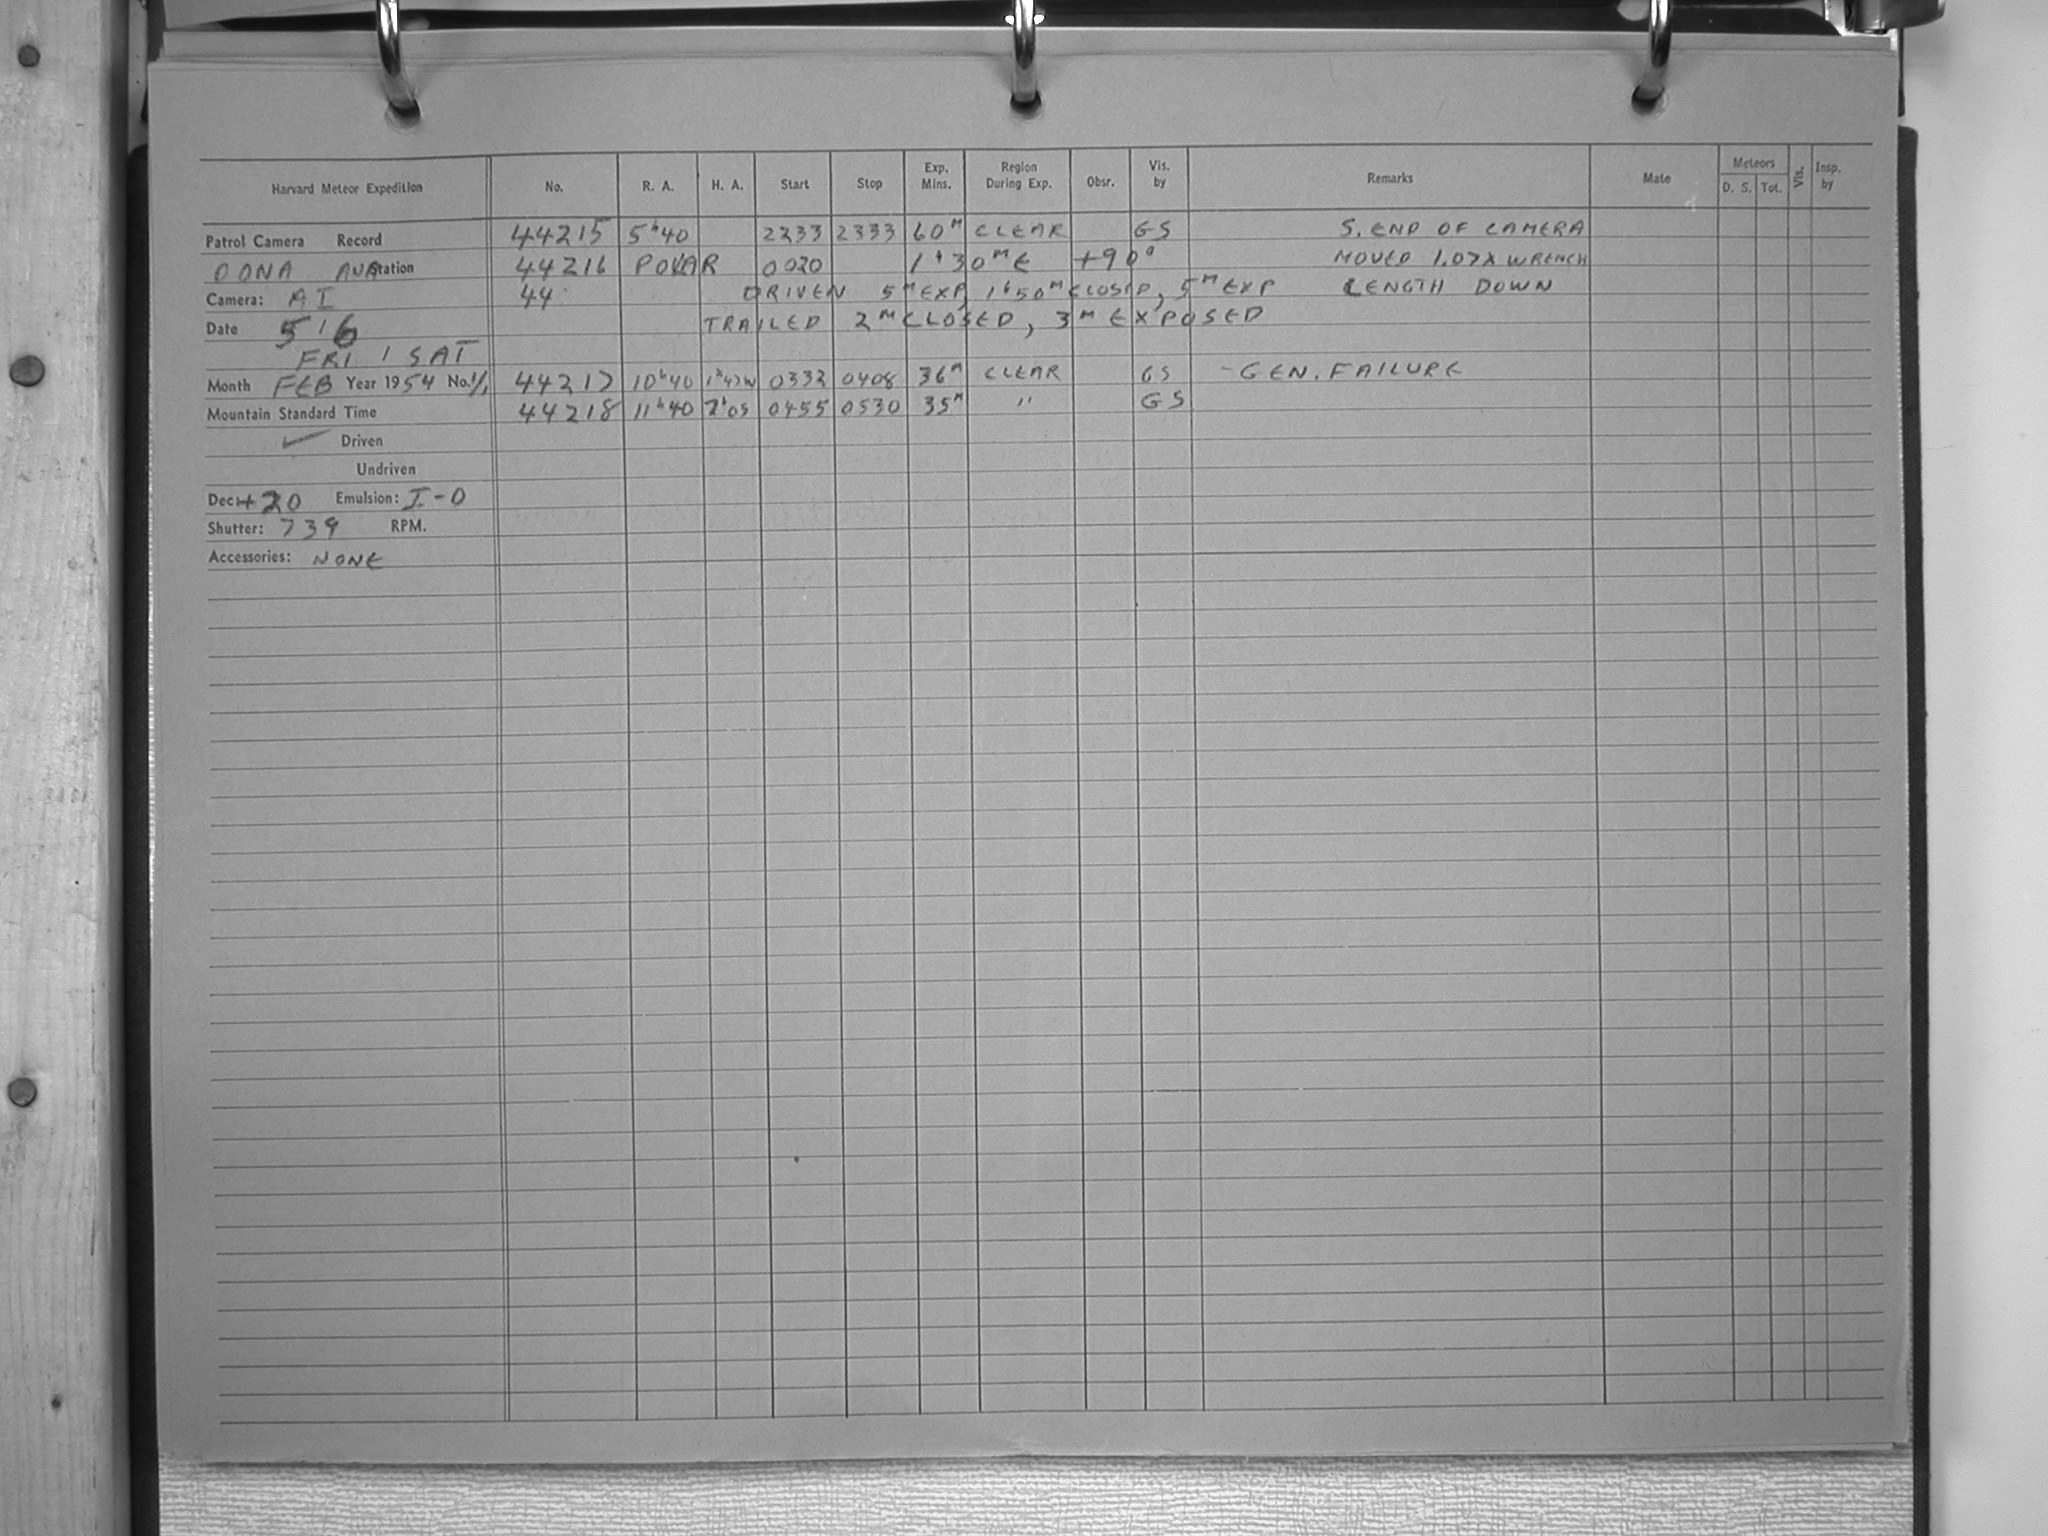 Harvard Meteor Expedition No. R. A. H. A. Start Stop Exp. Mins. Region During Exp. Obsr. Vis. by Remarks Mate Meteors D. S. Tot. Vis. Insp. by
Patrol Camera Record 44215 5ʰ40 2233 2333 60ᴹ CLEAR GS S. END OF CAMERA
DONA ANA Station 44216 POLAR 0020 1ʰ30ᴹE +90° MOVED 1.07X WRENCH
Camera: AI 44 DRIVEN 5ᴹEXP, 1ʰ50ᴹCLOSED, 5ᴹEXP LENGTH DOWN
Date 5/6 TRAILED 2ᴹCLOSED, 3ᴹEXPOSED
FRI / SAT
Month FEB Year 1954 No. 1/1 44217 10ʰ40 1ʰ47W 0332 0408 36ᴹ CLEAR GS - GEN. FAILURE
Mountain Standard Time 44218 11ʰ40 2ʰ05 0455 0530 35ᴹ " GS
✓ Driven
Undriven
Dec: +20 Emulsion: I-O
Shutter: 739 RPM.
Accessories: NONE